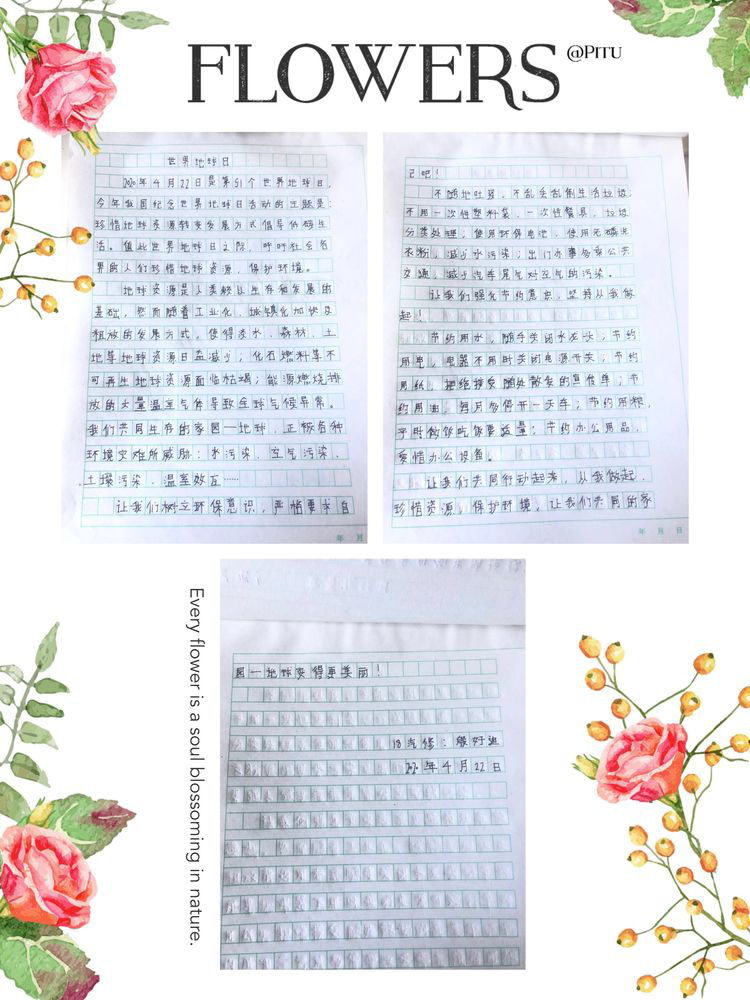 FLOWERS @PITU
世界地球日
2020年4月22日是第51个世界地球日,
今年我国纪念世界地球日活动的主题是:
珍惜地球资源转变发展方式倡导低碳生
活。值此世界地球日之际,呼吁社会各
界的人们珍惜地球资源,保护环境。
地球资源是人类赖以生存和发展的
基础,然而随着工业化、城镇化加快及
粗放的发展方式,使得淡水、森林、土
地等地球资源日益减少;化石燃料等不
可再生地球资源面临枯竭;能源燃烧排
放的大量温室气体导致全球气候异常。
我们共同生存的家园—地球,正被各种
环境灾难所威胁:水污染、空气污染、
土壤污染、温室效应……
让我们树立环保意识,严格要求自
己吧!
不随地吐痰,不乱丢乱倒生活垃圾;
不用一次性塑料袋、一次性餐具,垃圾
分类处理,使用环保电池,使用无磷洗
衣粉,减少水污染;出门办事多乘公共
交通,减少汽车尾气对空气的污染。
让我们强化节约意识,坚持从我做
起!
节约用水,随手关闭水龙头;节约
用电,电器不用时关闭电源开关;节约
用纸,拒绝接受随处散发的宣传单;节
约用油,每月少停开一天车;节约用粮,
平时做饭吃饭要适量;节约办公用品,
爱惜办公设备。
让我们共同行动起来,从我做起,
珍惜资源,保护环境,让我们共同的家
园—地球变得更美丽!
18汽修:
2020年4月22日
Every flower is a soul blossoming in nature.